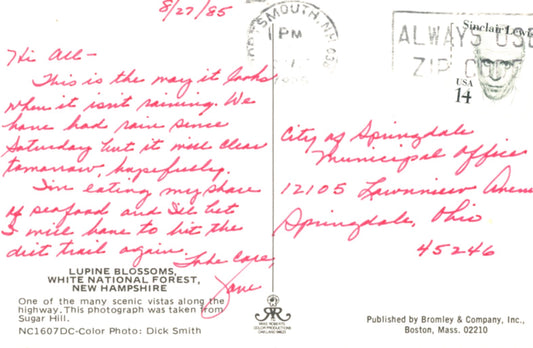 8/27/85
Hi All-
This is the way it looks
when it isn't raining. We
have had rain since
Saturday but it will clear
tomorrow, hopefully.
I'm eating my share
of seafood and I'll bet
I will have to hit the
diet trail again.
Take Care,
Jane
LUPINE BLOSSOMS,
WHITE NATIONAL FOREST,
NEW HAMPSHIRE
One of the many scenic vistas along the
highway. This photograph was taken from
Sugar Hill.
NC1607DC-Color Photo: Dick Smith
PORTSMOUTH, NH 038
PM
ALWAYS USE
ZIP CODE
Sinclair Lewis
USA
14
City of Springdale
Municipal Office
12105 Lawnview Avenue
Springdale, Ohio
45246
MIKE ROBERTS
COLOR PRODUCTIONS
Published by Bromley & Company, Inc.,
Boston, Mass. 02210